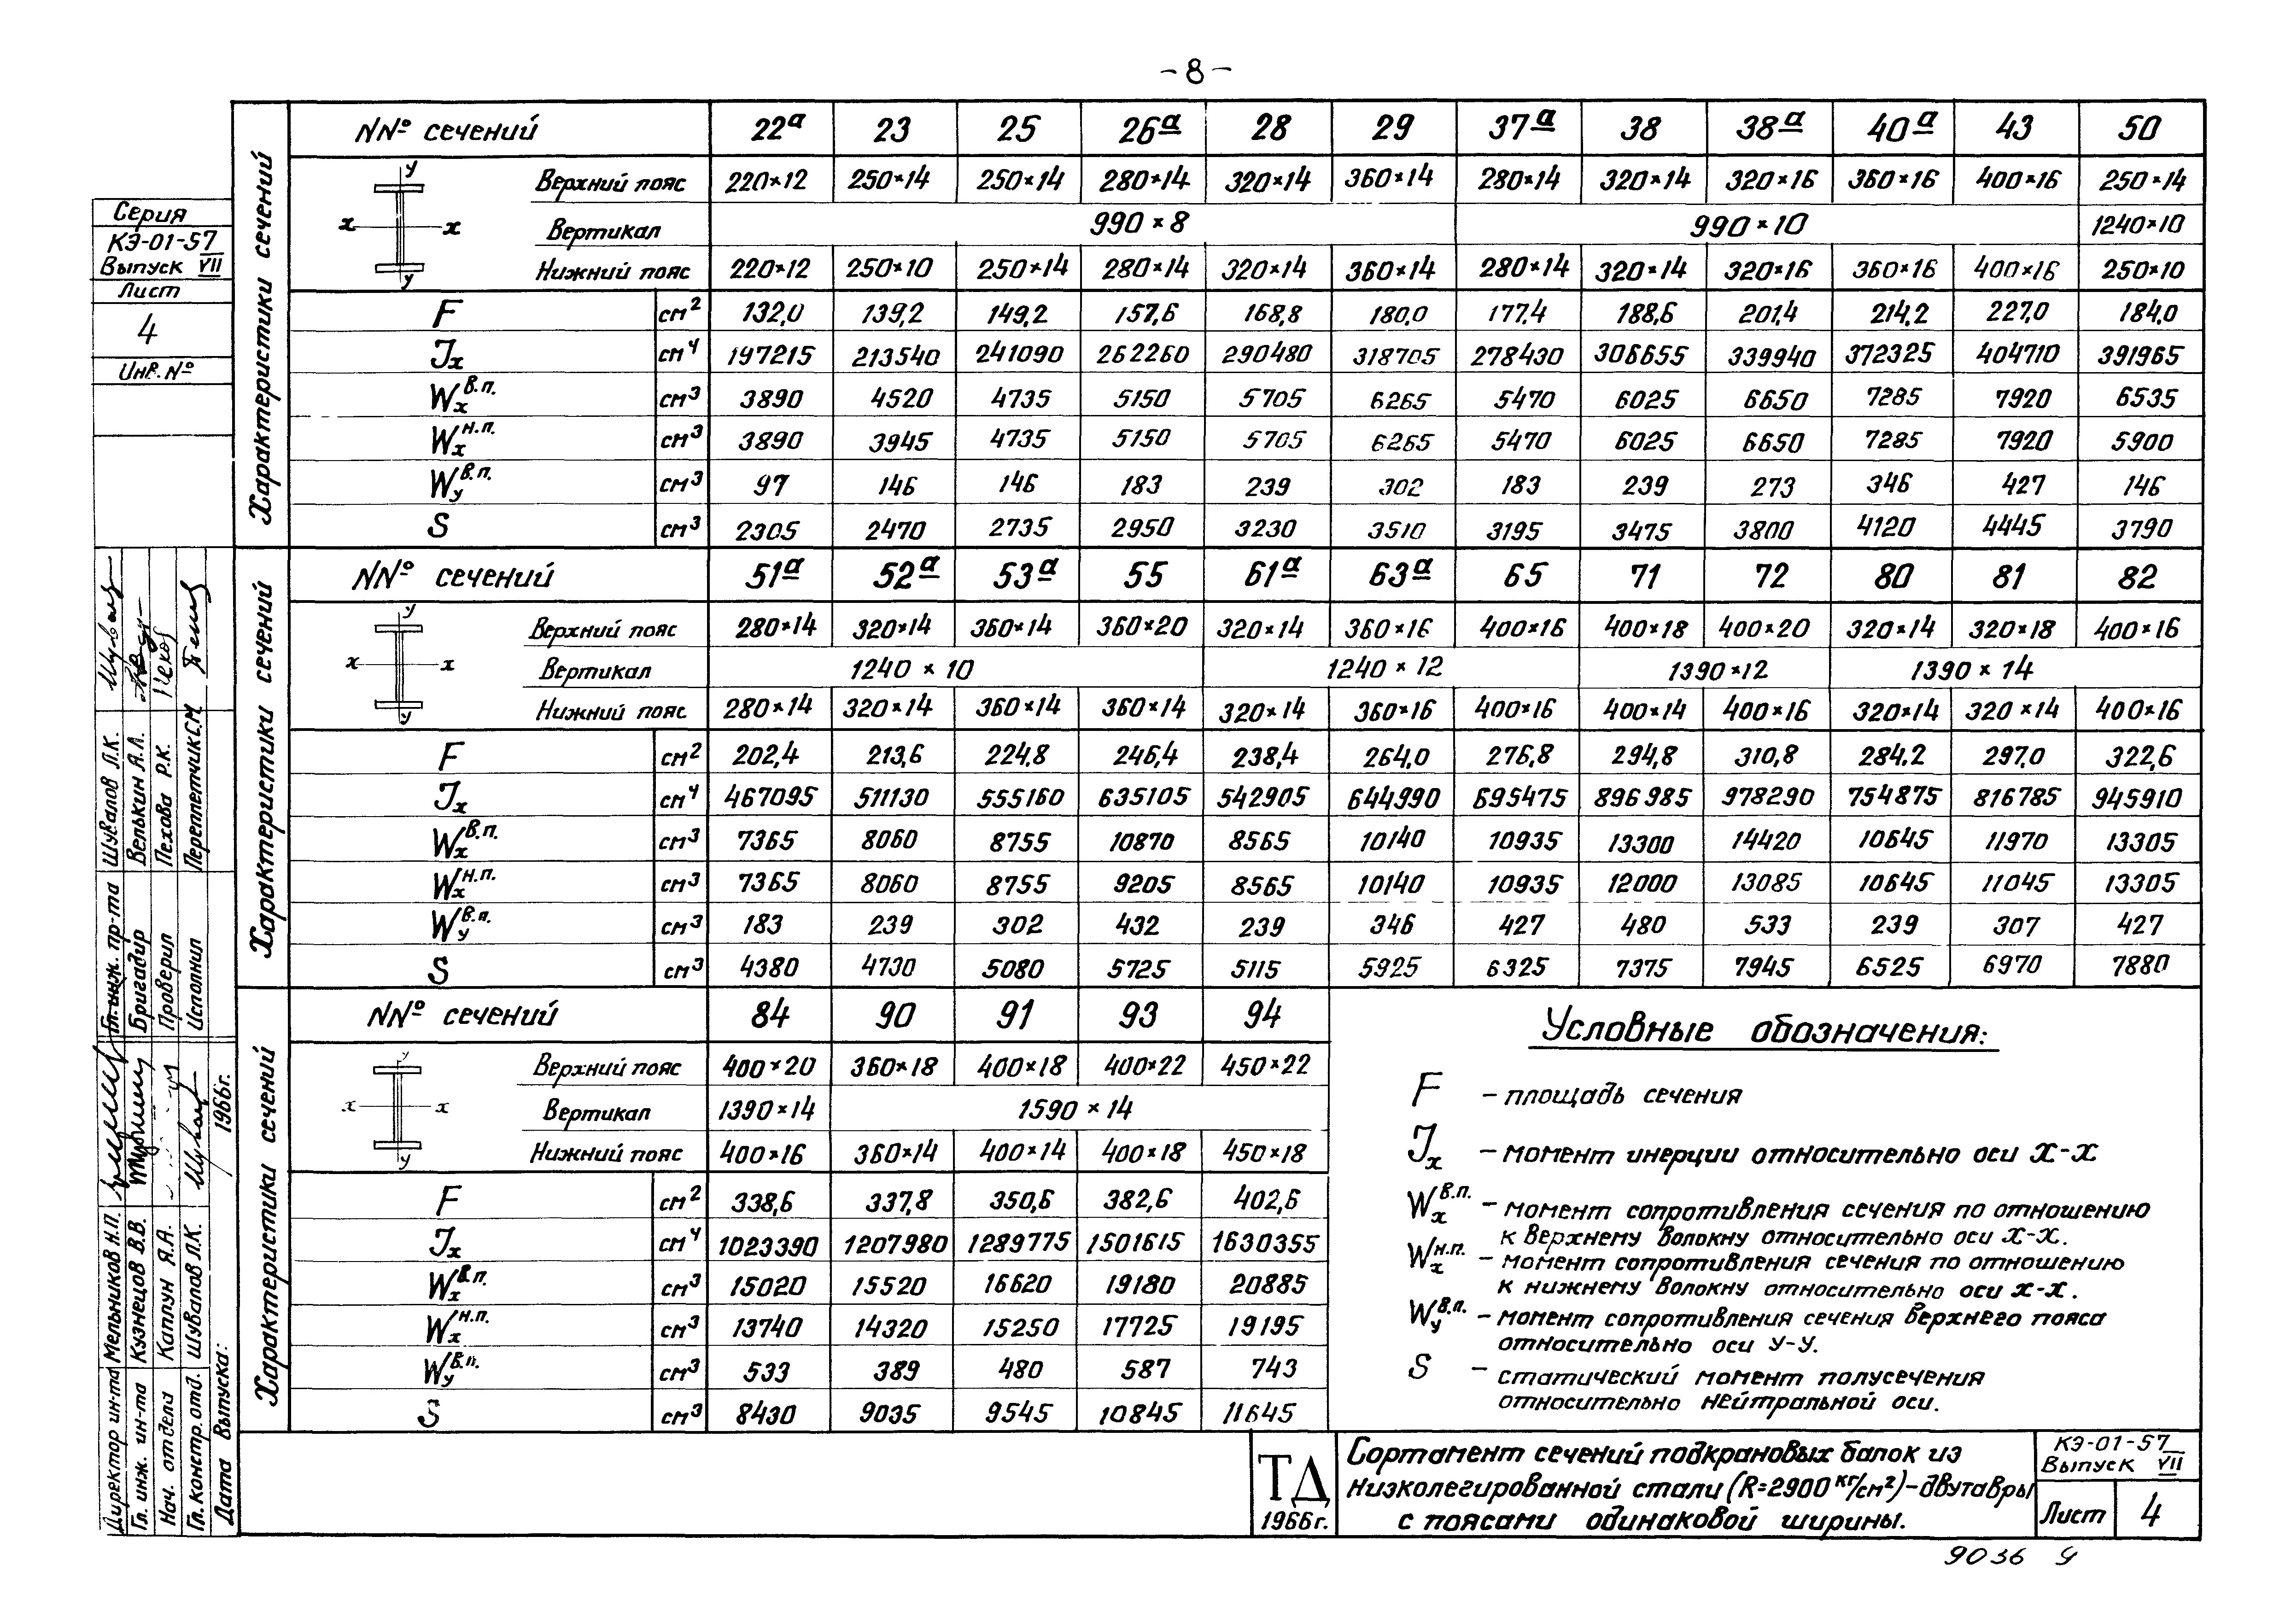 -8-
NNº сечений 22ª 23 25 26ª 28 29 37ª 38 38ª 40ª 43 50
Характеристики сечений
у
х х
у
Верхний пояс 220×12 250×14 250×14 280×14 320×14 360×14 280×14 320×14 320×16 360×16 400×16 250×14
Вертикал 990×8 990×10 1240×10
Нижний пояс 220×12 250×10 250×14 280×14 320×14 360×14 280×14 320×14 320×16 360×16 400×16 250×10
F см² 132,0 139,2 149,2 157,6 168,8 180,0 177,4 188,6 201,4 214,2 227,0 184,0
Jx см⁴ 197215 213540 241090 262260 290480 318705 278430 306655 339940 372325 404710 391965
Wx в.п. см³ 3890 4520 4735 5150 5705 6265 5470 6025 6650 7285 7920 6535
Wx н.п. см³ 3890 3945 4735 5150 5705 6265 5470 6025 6650 7285 7920 5900
Wу в.п. см³ 97 146 146 183 239 302 183 239 273 346 427 146
S см³ 2305 2470 2735 2950 3230 3510 3195 3475 3800 4120 4445 3790
NNº сечений 51ª 52ª 53ª 55 61ª 63ª 65 71 72 80 81 82
Характеристики сечений
у
х х
у
Верхний пояс 280×14 320×14 360×14 360×20 320×14 360×16 400×16 400×18 400×20 320×14 320×18 400×16
Вертикал 1240×10 1240×12 1390×12 1390×14
Нижний пояс 280×14 320×14 360×14 360×14 320×14 360×16 400×16 400×14 400×16 320×14 320×14 400×16
F см² 202,4 213,6 224,8 246,4 238,4 264,0 276,8 294,8 310,8 284,2 297,0 322,6
Jx см⁴ 467095 511130 555160 635105 542905 644990 695475 896985 978290 754875 816785 945910
Wx в.п. см³ 7365 8060 8755 10870 8565 10140 10935 13300 14420 10645 11970 13305
Wx н.п. см³ 7365 8060 8755 9205 8565 10140 10935 12000 13085 10645 11045 13305
Wу в.п. см³ 183 239 302 432 239 346 427 480 533 239 307 427
S см³ 4380 4730 5080 5725 5115 5925 6325 7375 7945 6525 6970 7880
NNº сечений 84 90 91 93 94
Характеристики сечений
у
х х
у
Верхний пояс 400×20 360×18 400×18 400×22 450×22
Вертикал 1390×14 1590×14
Нижний пояс 400×16 360×14 400×14 400×18 450×18
F см² 338,6 337,8 350,6 382,6 402,6
Jx см⁴ 1023390 1207980 1289775 1501615 1630355
Wx в.п. см³ 15020 15520 16620 19180 20885
Wx н.п. см³ 13740 14320 15250 17725 19195
Wу в.п. см³ 533 389 480 587 743
S см³ 8430 9035 9545 10845 11645
Условные обозначения:
F – площадь сечения
Jx – момент инерции относительно оси х-х
Wx в.п. – момент сопротивления сечения по отношению
к верхнему волокну относительно оси х-х.
Wx н.п. – момент сопротивления сечения по отношению
к нижнему волокну относительно оси х-х.
Wу в.п. – момент сопротивления сечения верхнего пояса
относительно оси у-у.
S – статический момент полусечения
относительно нейтральной оси.
ТД
1966г.
Сортамент сечений подкрановых балок из
низколегированной стали (R=2900 кг/см²)-двутавры
с поясами одинаковой ширины.
КЭ-01-57
Выпуск VII
Лист 4
9036 9
Серия
КЭ-01-57
Выпуск VII
Лист
4
Инв. Nº
Гл. инж. пр-та Шувалов Л.К.
Бригадир Велькин А.Л.
Проверил Пехова Р.К.
Исполнил Переплетчик С.М.
Директор ин-та Мельников Н.П.
Гл. инж. ин-та Кузнецов В.В.
Нач. отдела Каплун Я.А.
Гл. констр. отд. Шувалов Л.К.
Дата выпуска: 1966г.